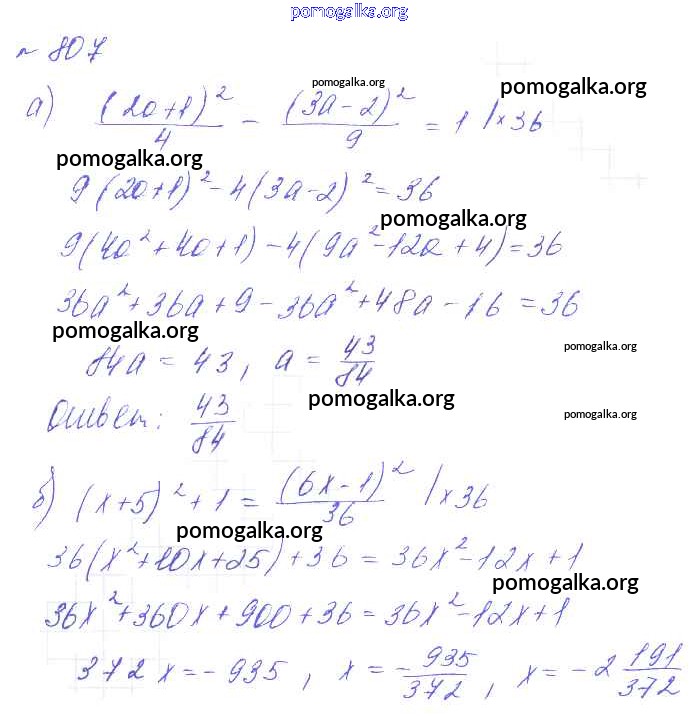 pomogalka.org
№ 807
pomogalka.org
pomogalka.org
а) (2a+1)²/4 - (3a-2)²/9 = 1 | ×36
pomogalka.org
9(2a+1)² - 4(3a-2)² = 36
pomogalka.org
9(4a²+4a+1) - 4(9a²-12a+4) = 36
36a²+36a+9-36a²+48a-16 = 36
pomogalka.org
pomogalka.org
84a = 43, a = 43/84
pomogalka.org
pomogalka.org
Ответ: 43/84
б) (x+5)²+1 = (6x-1)²/36 | ×36
pomogalka.org
36(x²+10x+25)+36 = 36x²-12x+1
pomogalka.org
36x²+360x+900+36 = 36x²-12x+1
372x = -935, x = -935/372, x = -2 191/372